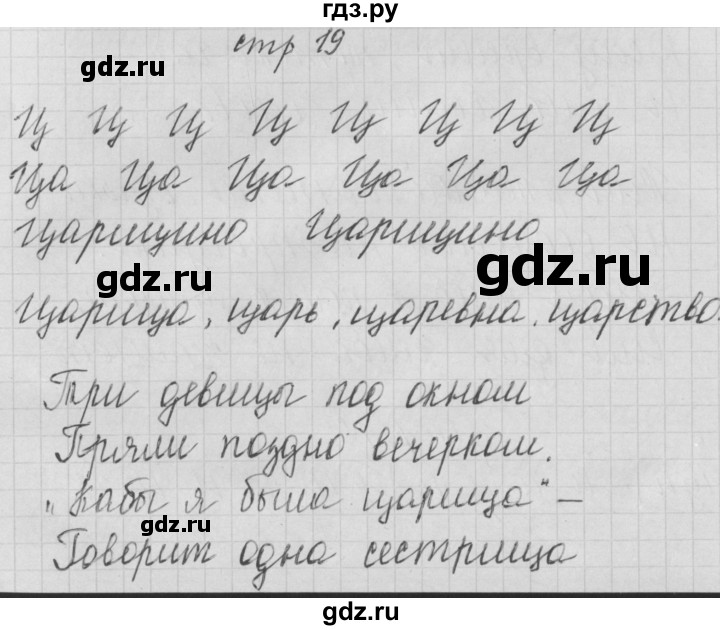 гдз.ру
стр 19
gdz.ru
Ц Ц Ц Ц Ц Ц Ц Ц
Ца Ца Ца Ца Ца Ца
Царицино Царицино
gdz.ru
gdz.ru
Царица, царь, царевна, царство.
Три девицы под окном
Пряли поздно вечерком.
„Кабы я была царица" –
gdz.ru
Говорит одна сестрица
gdz.ru